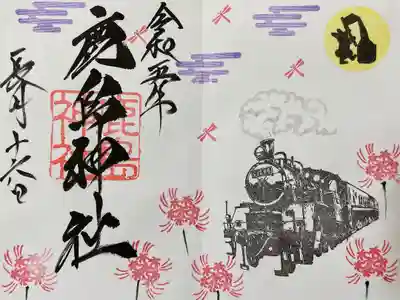 令和五年
鹿島神社
鹿島
神社
長月十六日